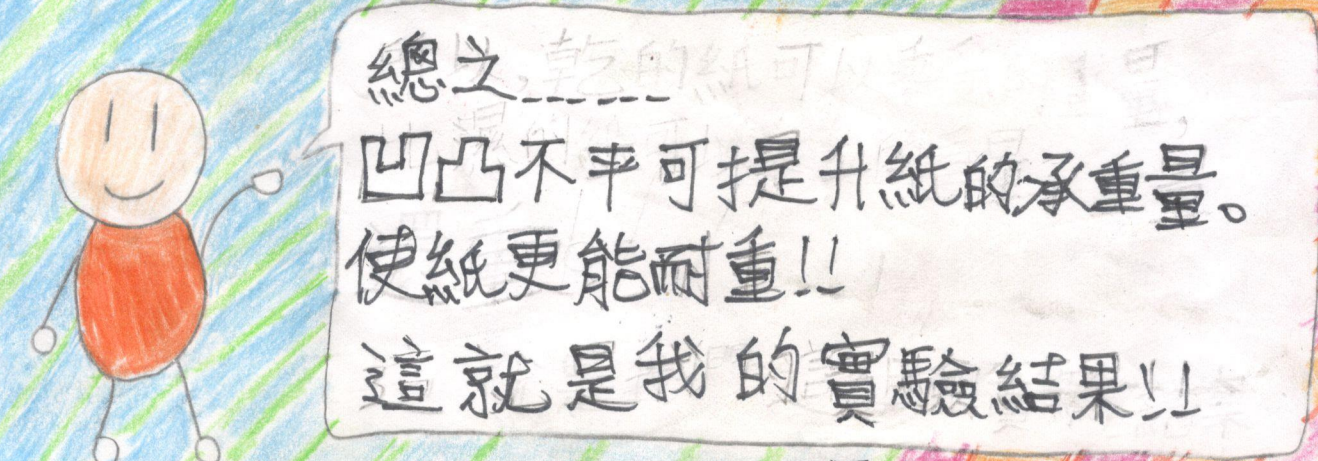 總之------
凹凸不平可提升紙的承重量。
使紙更能耐重!!
這就是我的實驗結果!!